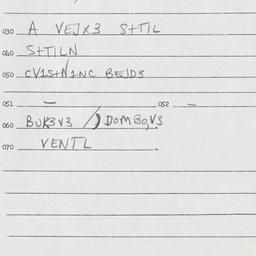 030 A VEJX3 S+TIL
040 S+TILN
050 CV1S+N1NC BEJD3
051 — 052 —
060 BUK3V3 /) DOMBO,V3
070 VENTL